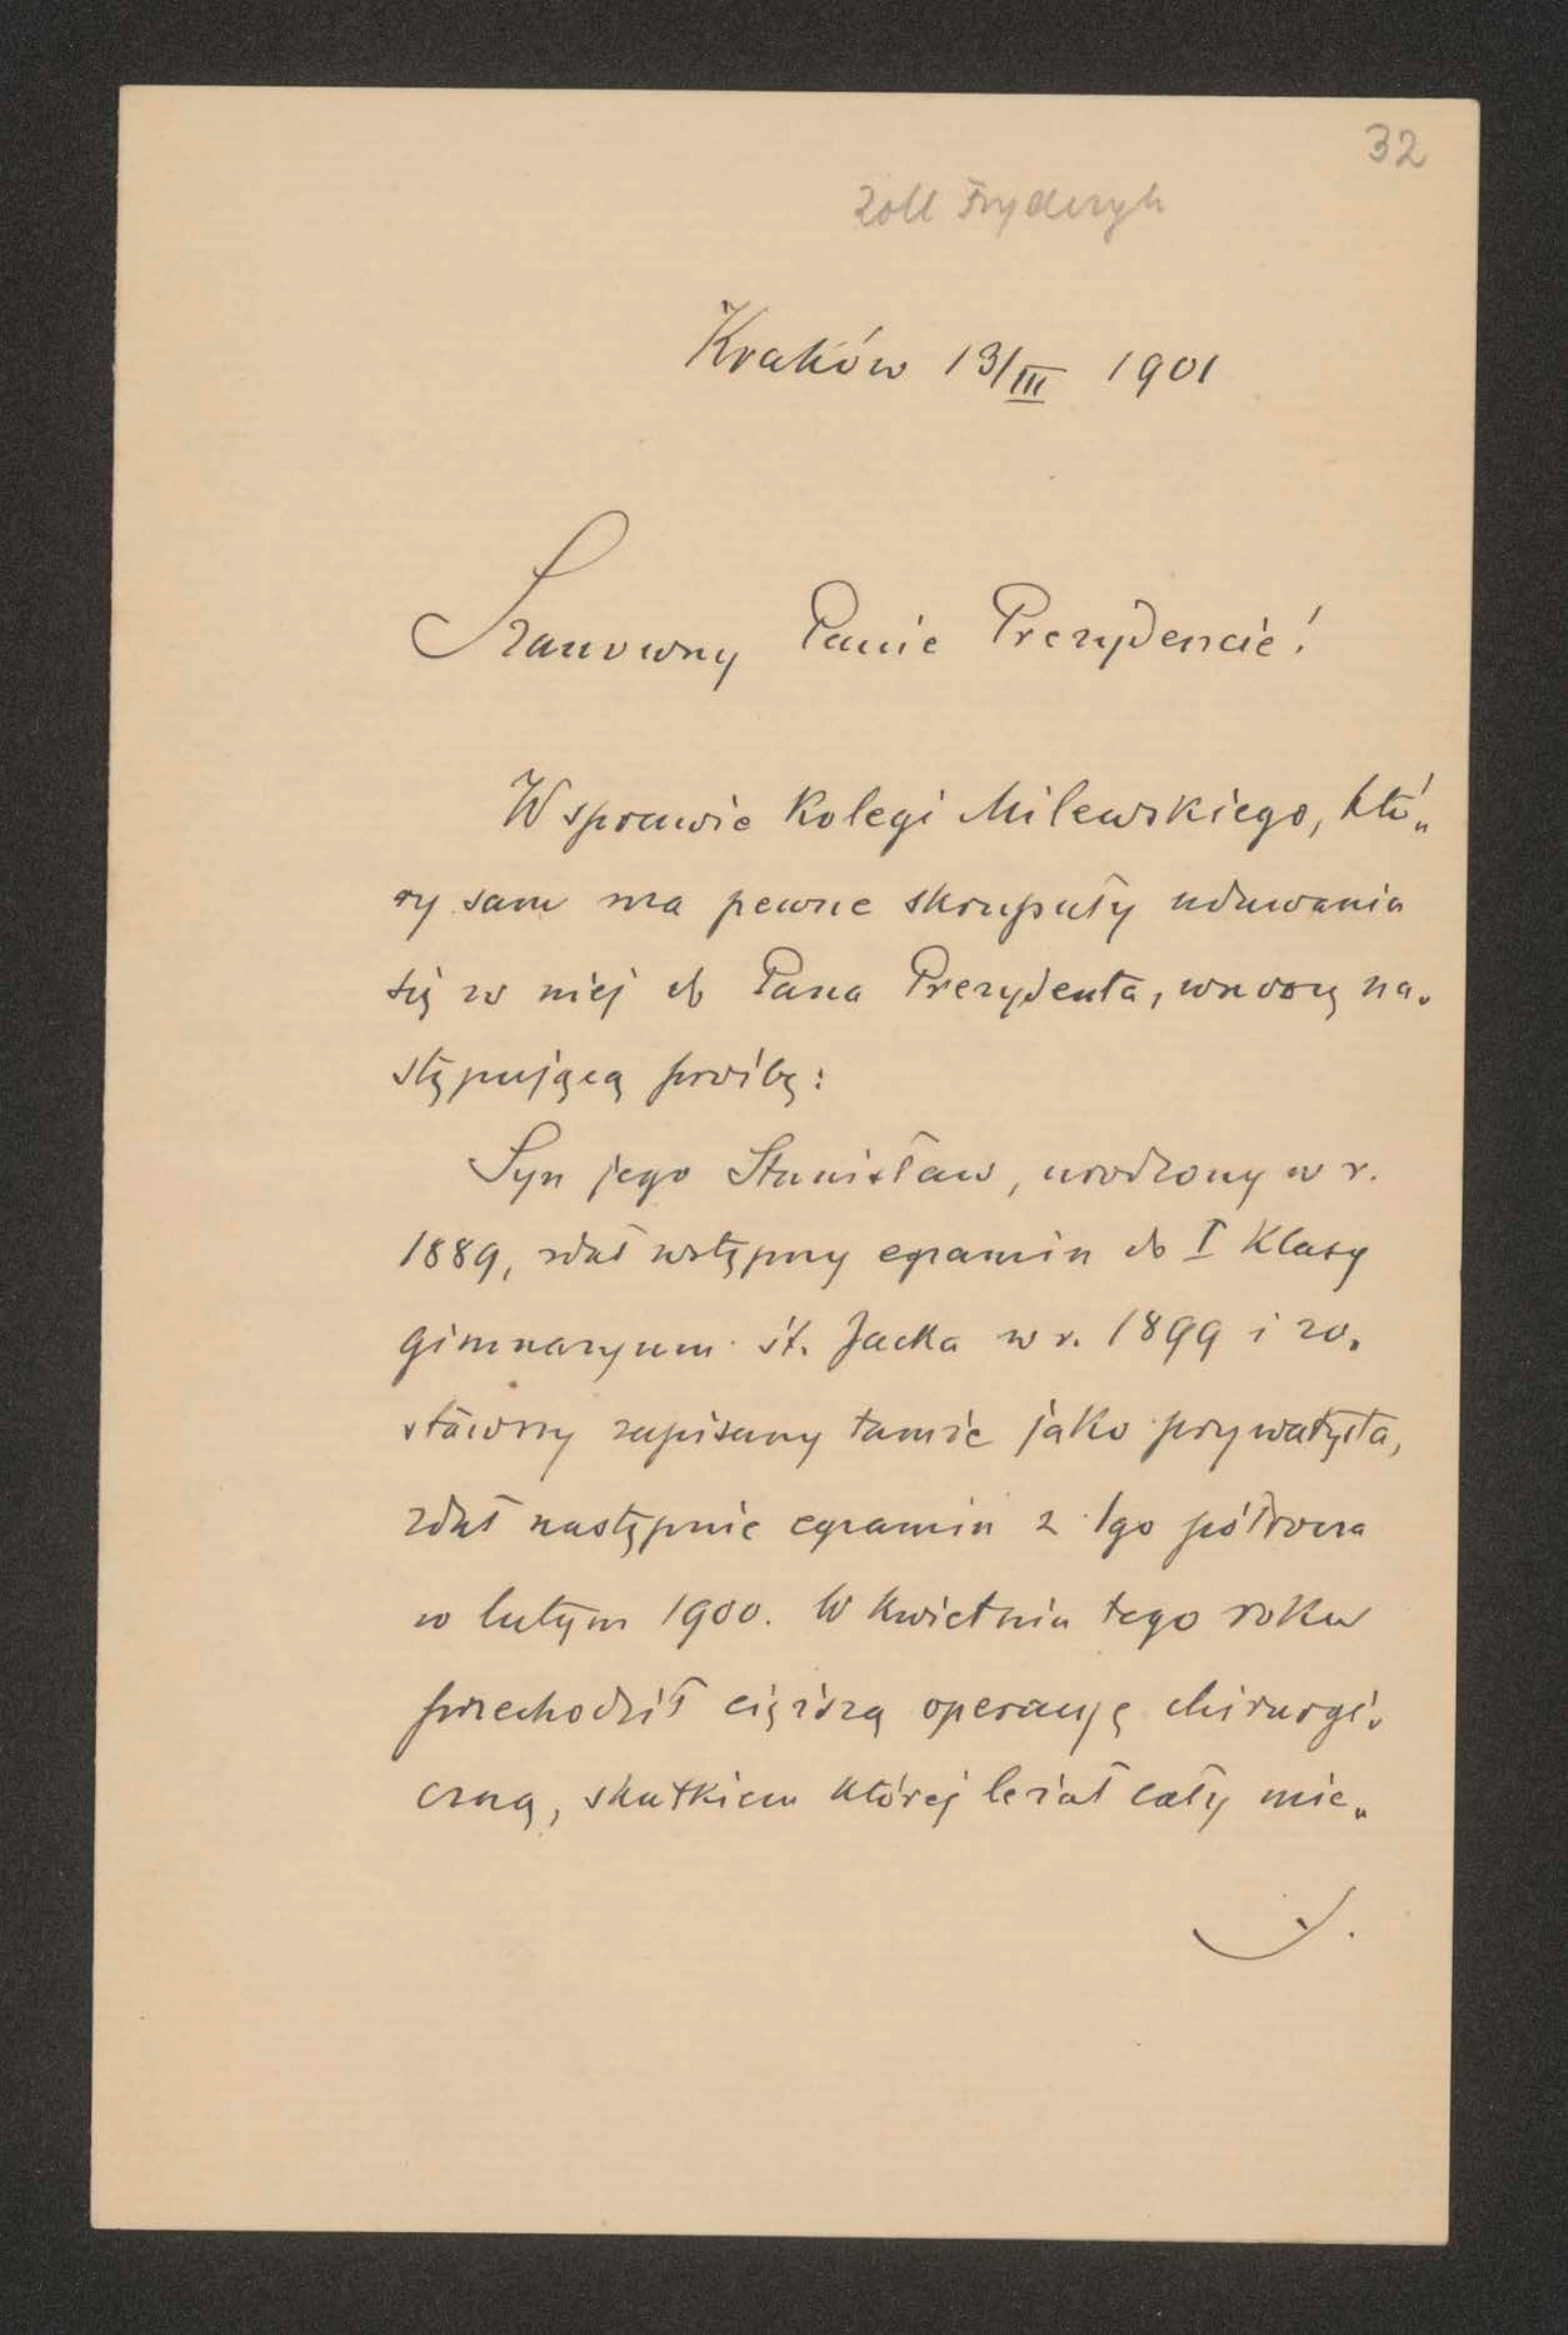 32
Zoll Fryderyk
Kraków 13/III 1901
Szanowny Panie Prezydencie!
W sprawie Kolegi Milewskiego, któ„
ry sam ma pewne skrupuły udawania
się w niej do Pana Prezydenta, wnoszę na„
stępującą prośbę:
Syn jego Stanisław, urodzony w r.
1889, zdał wstępny egzamin do I Klasy
gimnazyum św. Jacka w r. 1899 i zo„
stawszy zapisany tamże jako prywatysta,
zdał następnie egzamin z 1go półrocza
w lutym 1900. W Kwietniu tego roku
przechodził cięższą operacyę chirurgi„
czną, skutkiem której leżał cały mie„